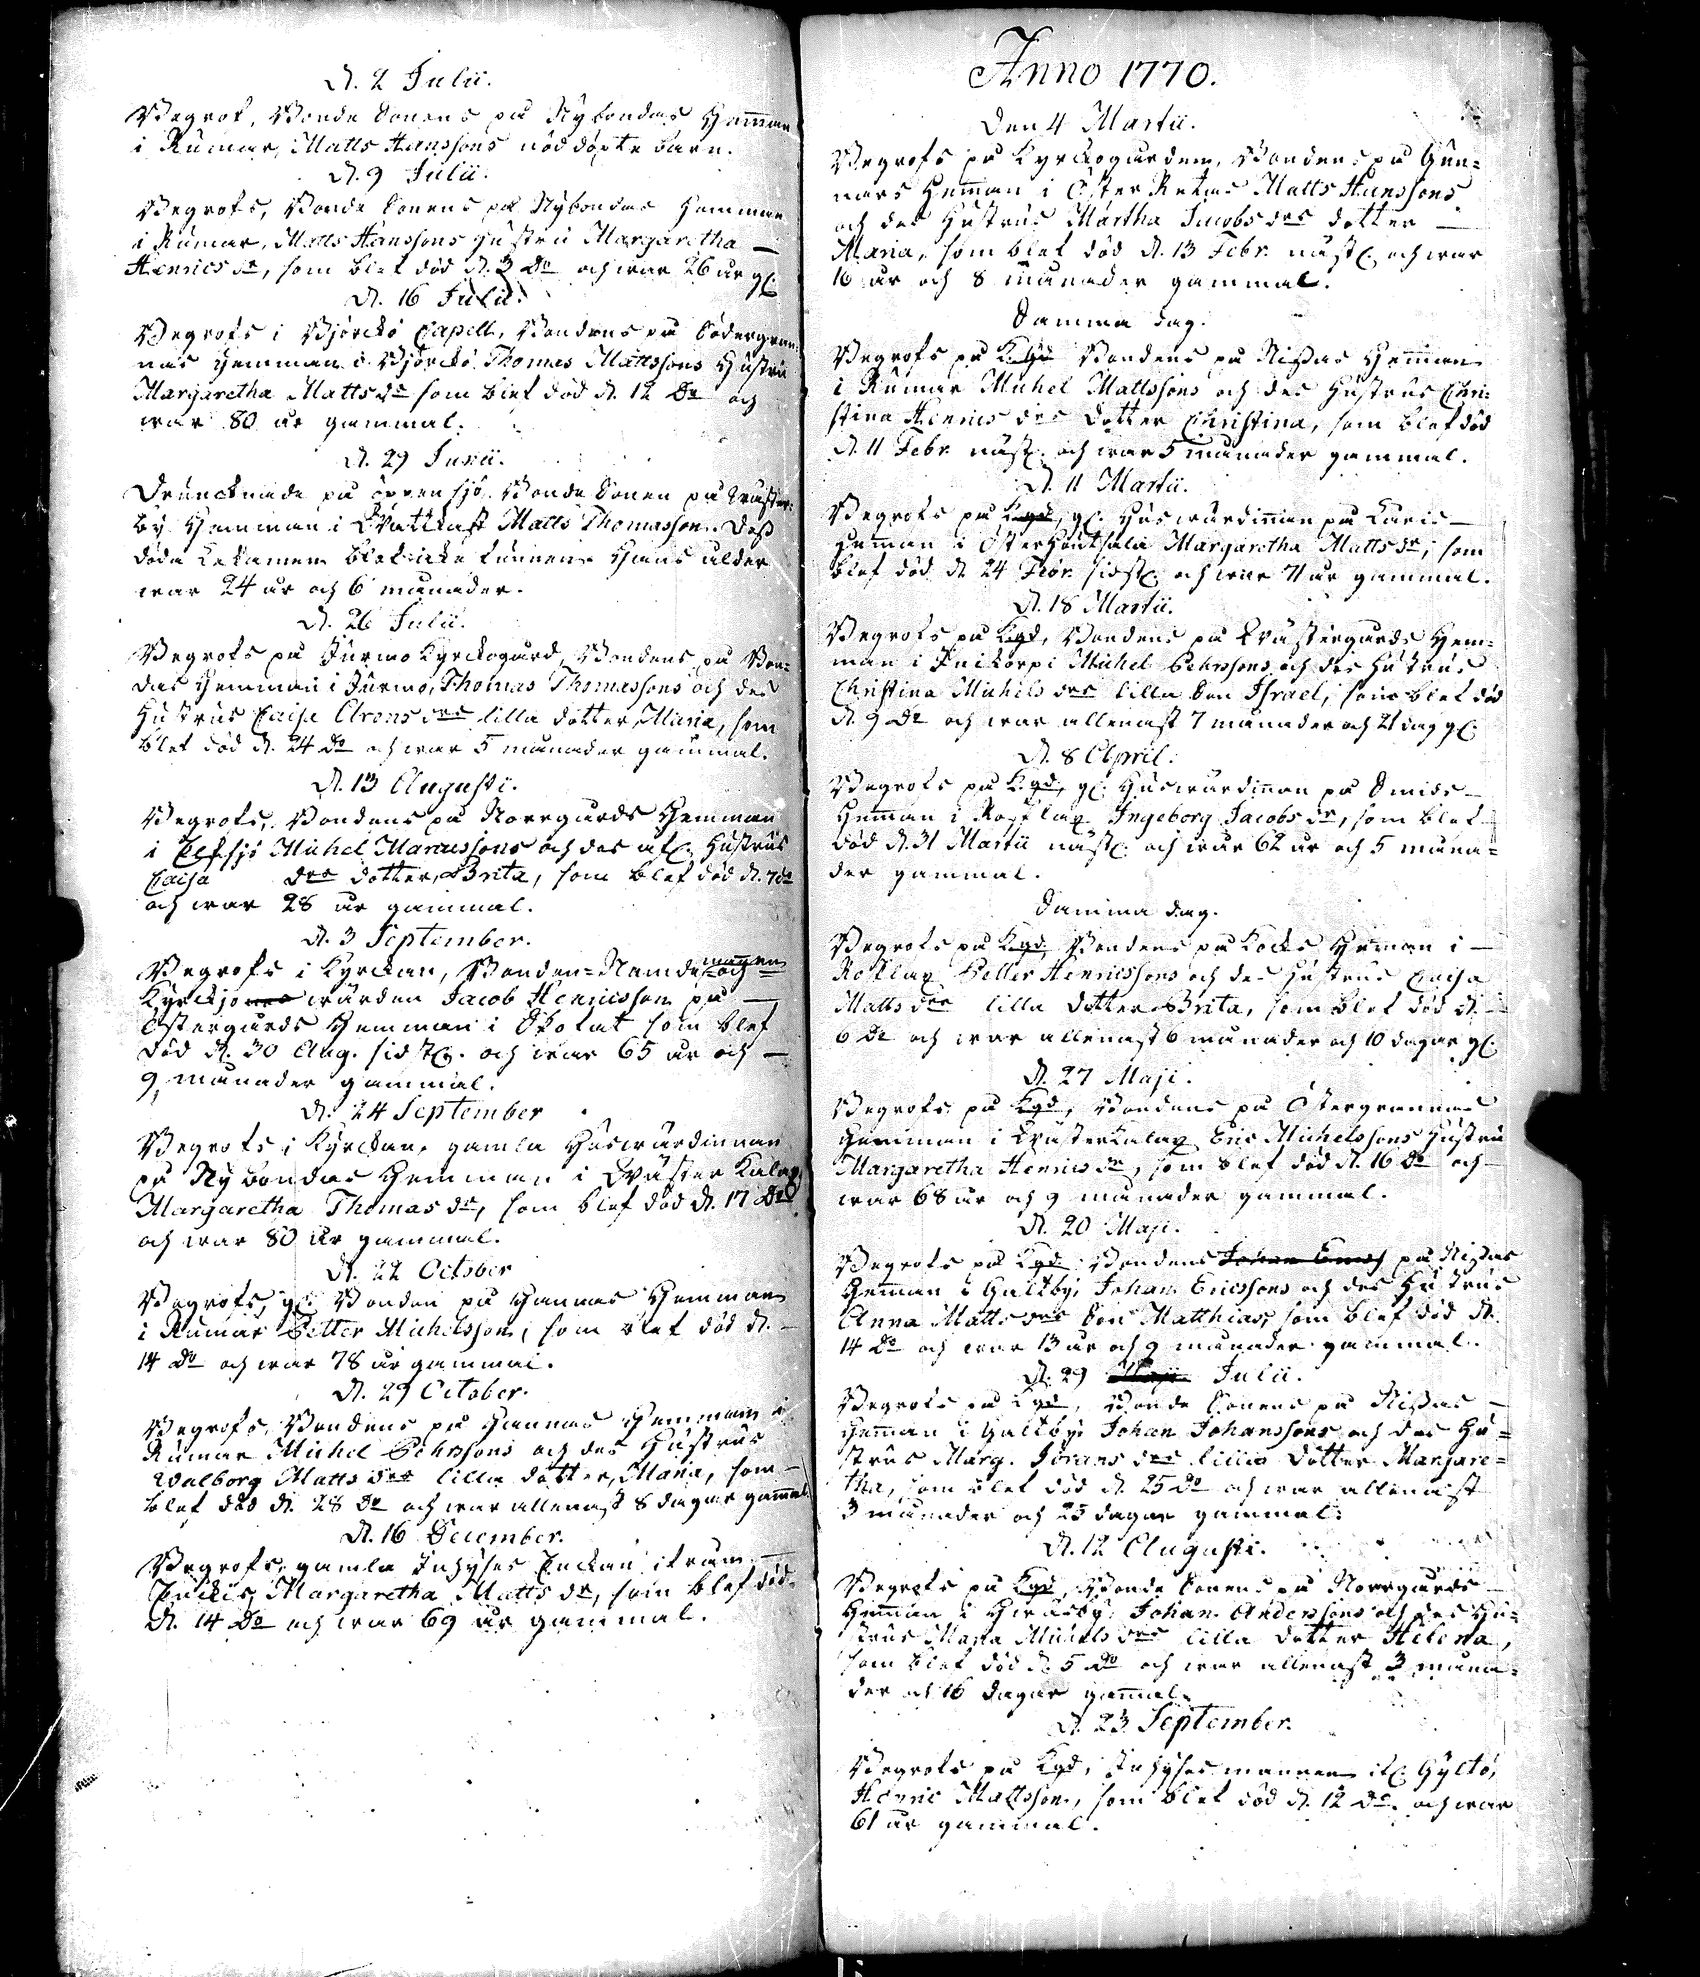 D. 2 Julii.
Begrof, Bonde Sonens på Nybondas Hemman
i Rumar, Matts Hanssons nöddöpte barn.
D. 9 Julii.
Begrofs, Bonde Sonens på Nybondas Hemman
i Rumar, Matts Hanssons Hustru Margaretha
Henrics dr, som blef död d. 3 Do och war 26 år gl.
D. 16 Julii.
Begrofs i Björckö Capell, Bondens på Södergran-
nas Hemman i Björckö Thomas Mattssons Hustru
Margaretha Matts dr som blef död d. 12 Do och
war 80 år gammal.
D. 29 Junii.
Druncknade på öppen sjö, Bonde Sonen på
by Hemman i Matts Thomasson. Dess
döda Lekamen blef icke funnen. Hans ålder
war 24 år och 6 månader.
D. 26 Julii.
Begrofs på Jurmo Kyrckogård, Bondens på Bon-
das Hemman i Jurmo, Thomas Thomassons och des
Hustrus Caisa Arons drs lilla dotter, Maria, som
blef död d. 24 Do och war 5 månader gammal.
D. 13 Augusti.
Begrofs, Bondens på Norrgårds Hemman
i Elfsjö Michel Marcussons och des afl. Hustrus
Caisa drs dotter, Brita, som blef död d. 7 do
och war 28 år gammal.
D. 3 September.
Begrofs i Kyrckan, Bonden-Namdemannen och
Kyrckio wärden Jacob Henricsson på
Östergårds Hemman i som blef
död d. 30 Aug. sidstl. och war 65 år och
9 månader gammal.
D. 24 September
Begrofs i Kyrckan, gamla Huswärdinnan
på Nybondas Hemman i Wäster Kalax
Margaretha Thomas dr, som blef död d. 17 Do
och war 80 år gammal.
D. 22 October
Begrofs, gl. Bonden på Hannas Hemman
i Rumar Petter Michelsson, som blef död d.
14 Do och war 78 år gammal.
D. 29 October.
Begrofs, Bondens på Hannas Hemman i
Rumar Michel Pehrssons och des Hustrus
Walborg Matts drs lilla dotter, Maria, som
blef död d. 28 Do och war allenast 8 dagar gammal
D. 16 December.
Begrofs, gamla Inhyses Enckan ifrån
Margaretha Matts dr, som blef död
d. 14 Do och war 69 år gammal.
Anno 1770.
Den 4 Martii.
Begrofs på Kyrckogården, Bondens på Gun-
nars Heman i Öster Retais Matts Hanssons
och des Hustrus Martha Jacobs drs dotter
Maria, som blef död d. 13 Febr. nästl. och war
16 år och 8 månader gammal.
Samma dag.
Begrofs på Kgd Bondens på Nissas Heman
i Rumar Michel Mattssons och des Hustrus Chri-
stina Henrics drs dotter Christina, som blef död
d. 11 Febr. nästl. och war 5 månader gammal.
D. 11 Martii.
Begrofs på Kgd, gl. Huswärdinnan på
Heman i Österhoutskala Margaretha Matts dr, som
blef död d. 24 Febr. sidstl. och war 71 år gammal.
D. 18 Martii.
Begrofs på Kgd, Bondens på Wästergårds Hem-
man i Michel Pehrssons och des Hustrus
Christina Michels drs lilla Son Israel, som blef död
d. 9 Do och war allenast 7 månader och 21 dag gl.
D. 8 April.
Begrofs på Kgd, gl. Huswärdinnan på Smids
Heman i Rosklax Ingeborg Jacobs dr, som blef
död d. 31 Martii nästl. och war 62 år och 5 måna-
der gammal.
Samma dag.
Begrofs på Kgd, Bondens på Kocks Heman i
Rosklax Petter Henricssons och des Hustrus Caisa
Matts drs lilla dotter Brita, som blef död d.
6 Do och war allenast 6 månader och 10 dagar gl.
D. 27 Maji.
Begrofs på Kgd, Bondens på Östergrannas
Hemman i Wästerkalax Eric Michelssons Hustru
Margaretha Henrics dr, som blef död d. 16 Do och
war 68 år och 9 månader gammal.
D. 20 Maji.
Begrofs på Kgd Bondens Johan Erics på Nissas
Heman i Galtby, Johan Ericssons och des Hustrus
Anna Matts drs Son Matthias, som blef död d.
14 Do och war 13 år och 9 månader gammal.
D. 29 Maji Julii.
Begrofs på Kgd, Bonde Sonens på Nissas
Heman i Galtby, Johan Johanssons och des Hu-
strus Marg. Jörans drs lilla dotter Margare-
tha, som blef död d. 25 Do och war allenast
3 månader och 25 dagar gammal.
D. 12 Augusti.
Begrofs på Kgd, Bonde Sonens på Norrgårds
Heman i Hwarby, Johan Anderssons och des Hu-
strus Maria Michels drs lilla dotter Helena,
som blef död d. 5 Do och war allenast 3 måna-
der och 16 dagar gammal.
D. 23 September.
Begrofs på Kgd, Inhyses mannen ifl. Gyltö,
Henric Mattsson, som blef död d. 12 Do. och war
61 år gammal.